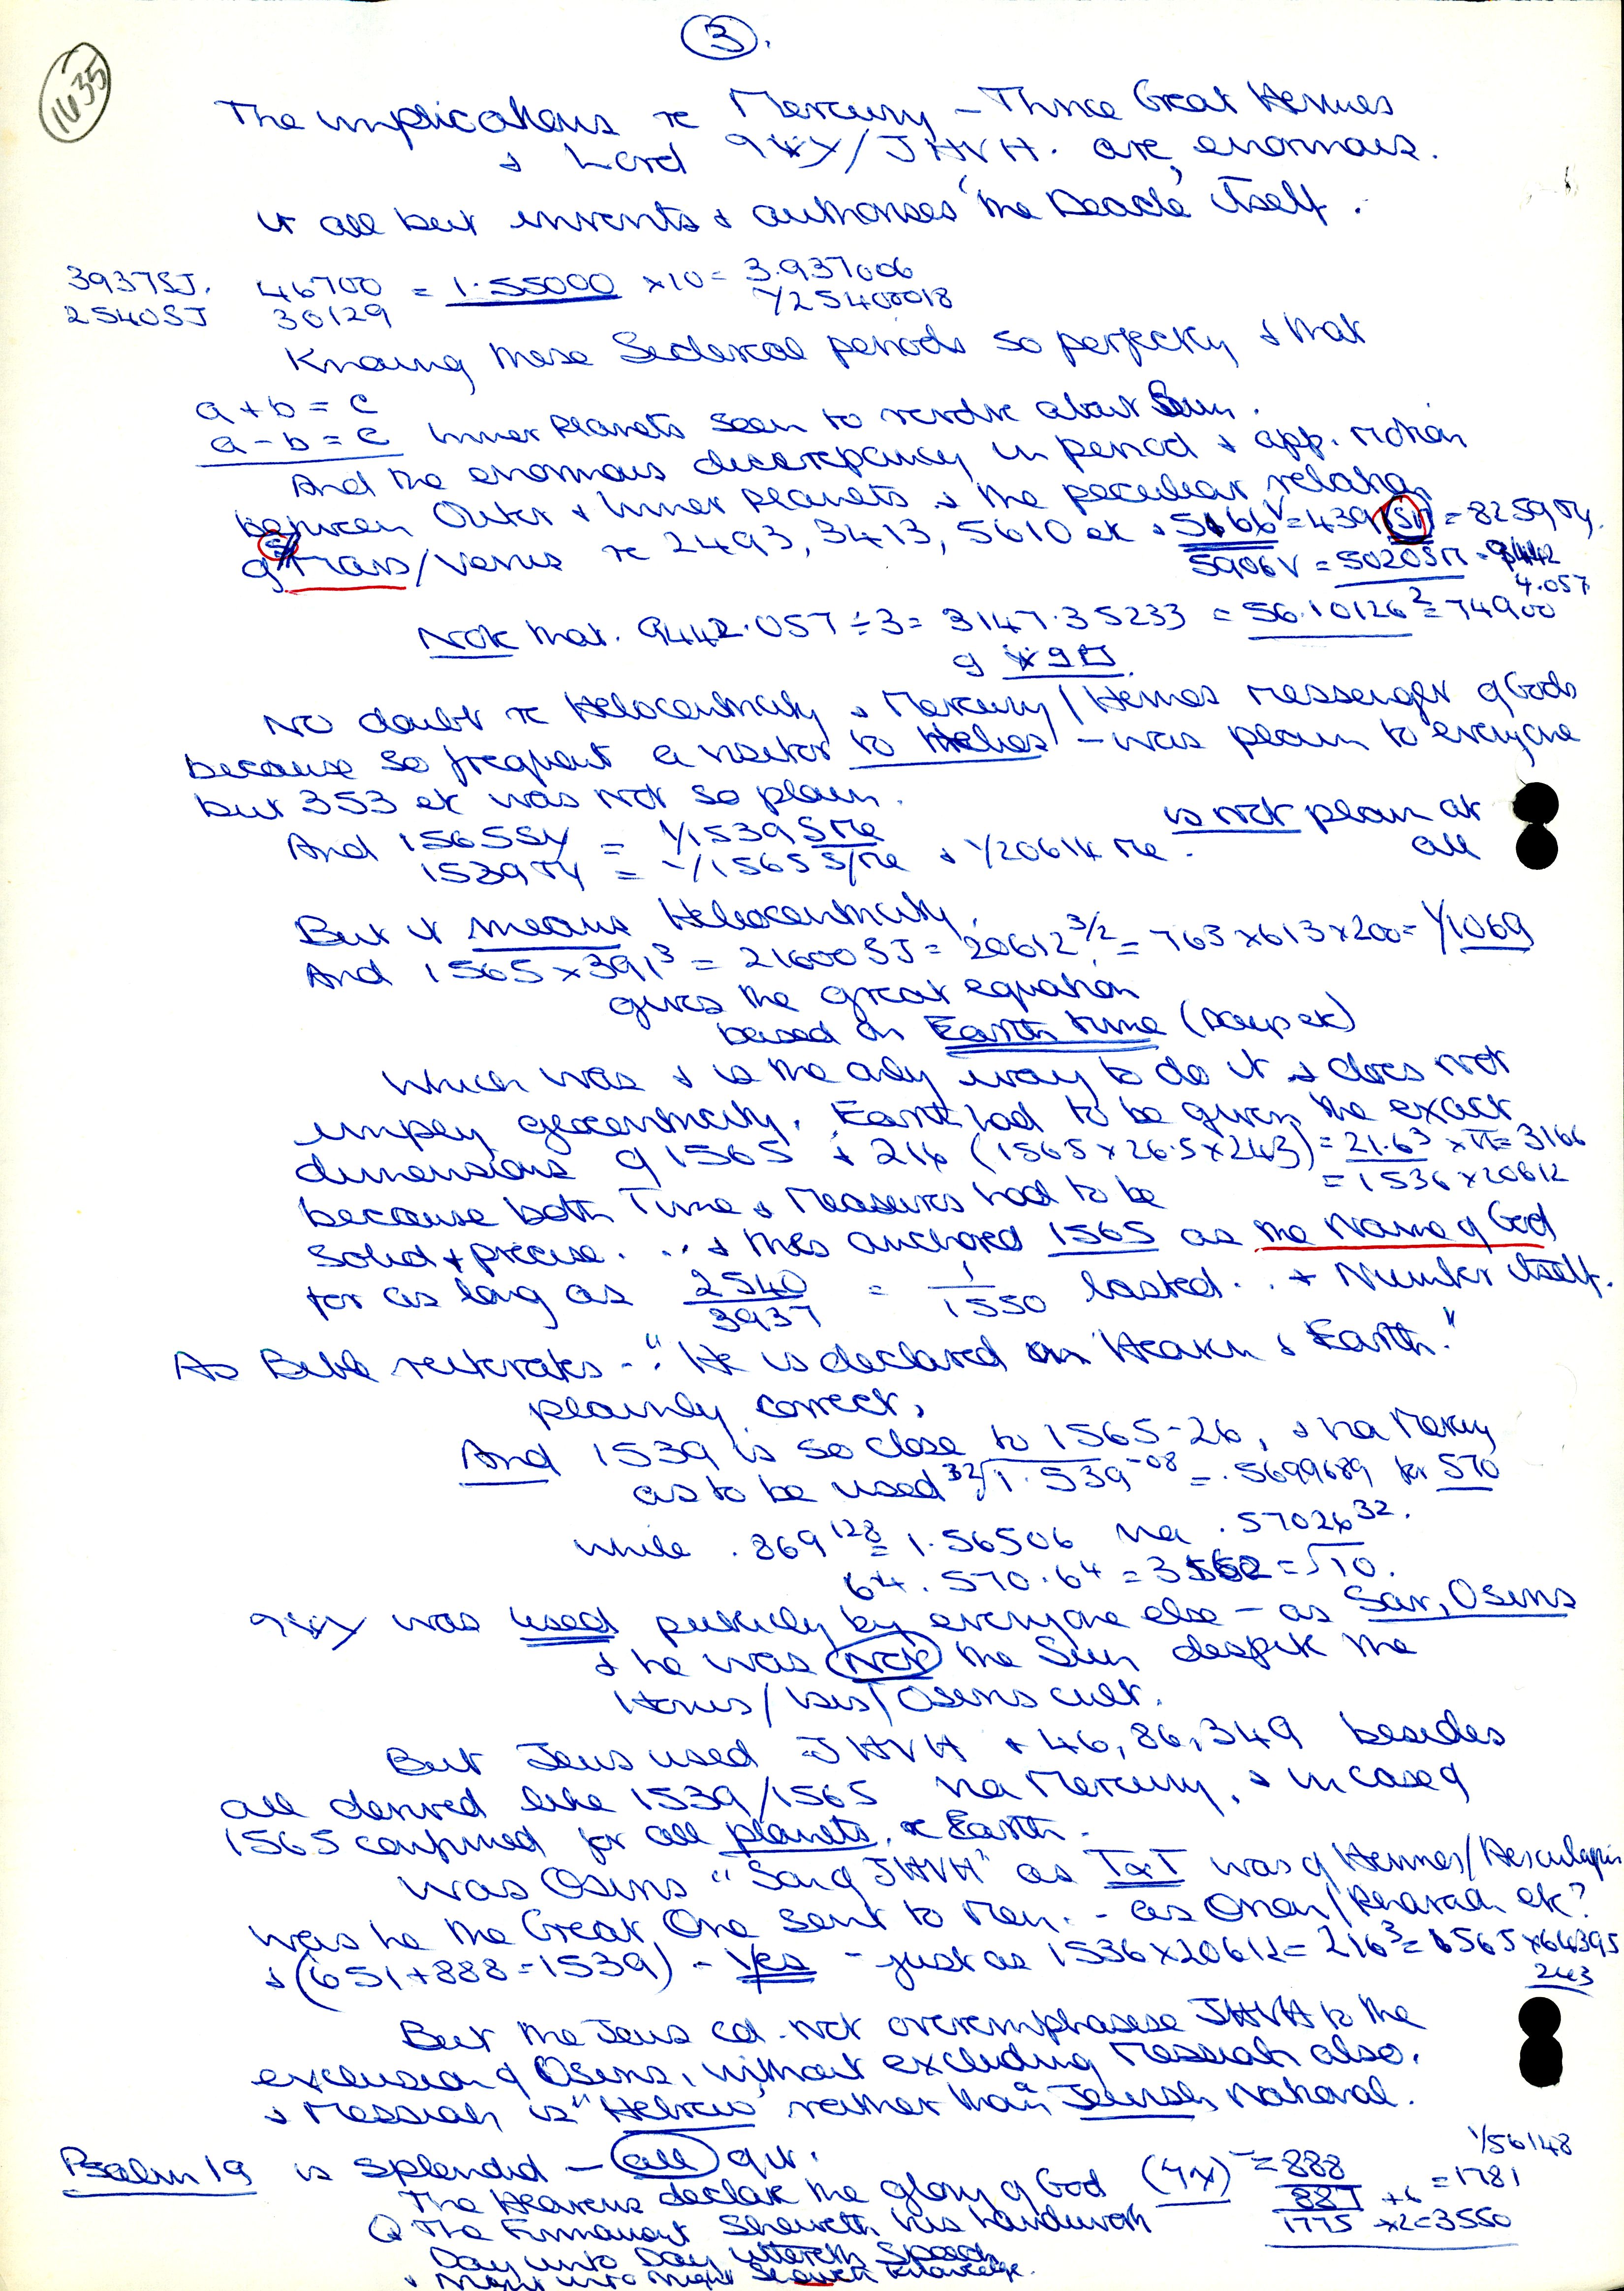 3.
1635
The implications re Mercury – Thrice Great Hermes
& Lord / JHVH. are enormous.
it all but invents & authorises 'the Decade' itself.
3937SJ. 46700 = 1.55000 x10 = 3.937006
2540SJ 30129 1/25400018
Knowing these Sidereal periods so perfectly & that
a + b = c
a - b = c Inner Planets seen to revolve about Sun.
And the enormous discrepancy in period & app. motion
between Outer & Inner Planets & the peculiar relation
of Mars/Venus re 2493, 3413, 5610 etc & 5166V = 439 = 8259
5906V = 5020SM = 9442
4.057
Note that. 9442.057 ÷ 3 = 3147.35233 = 56.10126² = 74900
No doubt re Heliocentricity & Mercury/Hermes messenger of Gods
because so frequent a visitor to Helios – was plain to everyone
but 353 etc was not so plain.
And 1565SY = 1/1539 SMe is not plain at
1539 = 1/1565 S/Me & 1/20614 Me. all
But it means Heliocentricity.
And 1565 x 391³ = 21600SJ = 20612 3/2 = 763 x 613 x 200 = 1/1069
gives the great equation
based on Earth time (Days etc)
Which was & is the only way to do it & does not
imply geocentricity. Earth had to be given the exact
dimensions of 1565 & 216 (1565 x 26.5 x 243) = 21.6³ x π = 3166
= 1536 x 20612
because both Time & Measures had to be
solid & precise. .. & thus anchored 1565 as the Name of God
for as long as 2540/3937 = 1/1550 lasted.. + Number itself.
As Bible reiterates - "He is declared in Heaven & Earth."
plainly correct,
And 1539 is so close to 1565-26, & via Mercury
as to be used 32√1.539-08 = .5699689 for 570
while .869 128 = 1.56506 via .57026 32.
64. 570. 64 = 3162 = √10.
was used publicly by everyone else – as Sar, Osiris
& he was not the Sun despite the
Horus/Isis/Osiris cult.
But Jews used JHVH + 46, 86, 349 besides
all derived like 1539/1565 via Mercury, & in case of
1565 confirmed for all planets, re Earth.
Was Osiris "Son of JHVH" as TaT was of Hermes/Aesculapius
Was he the Great One sent to Men. – as Orion/Pharaoh etc?
& (651+888=1539) – Yes – just as 1536 x 20612 = 216³ = 1565 x 64395
243
But the Jews cd. not overemphasise JHVH to the
exclusion of Osiris, without excluding Messiah also.
& Messiah is "Hebrew" rather than a Jewish National.
Psalm 19 is splendid – all of it.
The Heavens declare the glory of God = 888 1/56148
887 +6 = 1781
1775 x2=3550
& The Firmament Sheweth his handiwork
Day unto Day uttereth Speech
& Night unto Night Sheweth Knowledge.